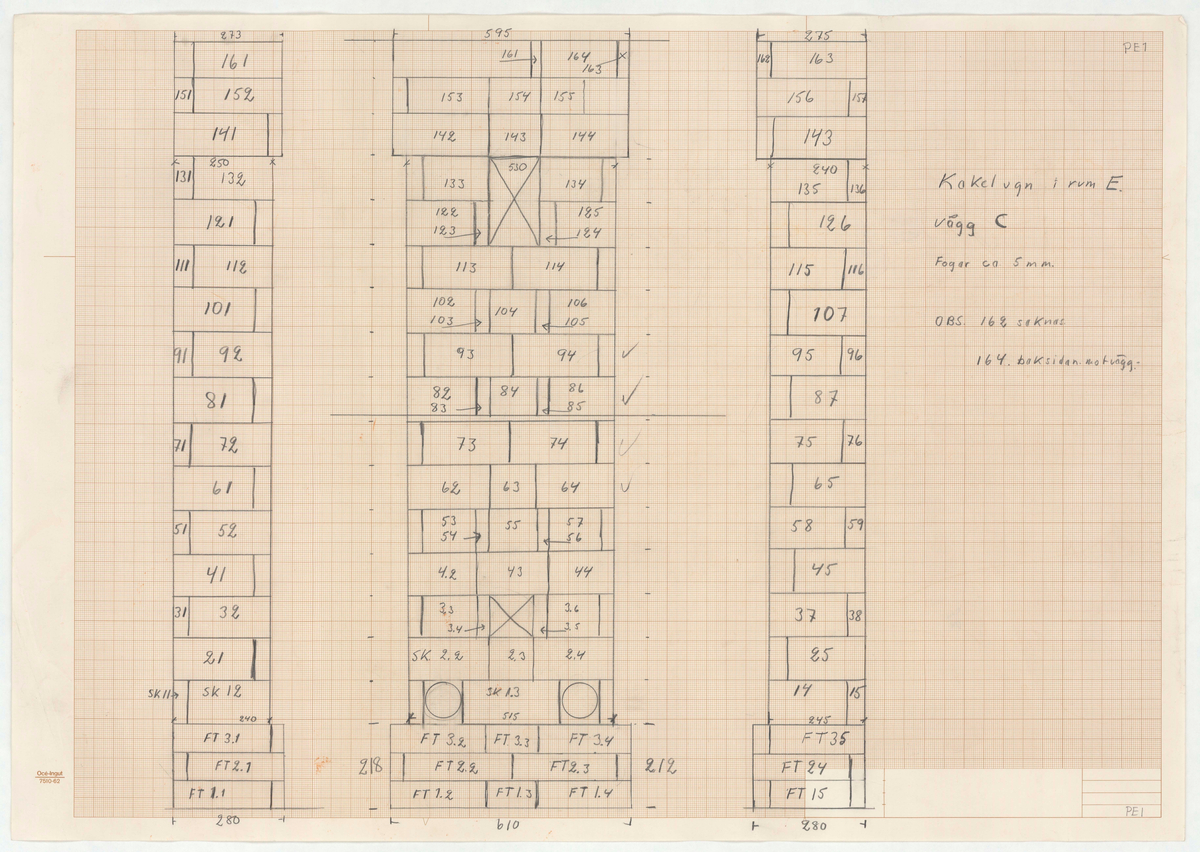 273
161
151 152
141
250
131 132
121
111 112
101
91 92
81
71 72
61
51 52
41
31 32
21
SK 11 SK 12
240
FT 3.1
FT 2.1
FT 1.1
280
595
161 164
163
153 154 155
142 143 144
530
133 134
122 125
123 124
113 114
102 104 106
103 105
93 94
82 84 86
83 85
73 74
62 63 64
53 55 57
54 56
4.2 43 44
3.3 3.6
3.4 3.5
SK. 2.2 2.3 2.4
SK 1.3
515
FT 3.2 FT 3.3 FT 3.4
218 FT 2.2 FT 2.3 212
FT 1.2 FT 1.3 FT 1.4
610
275
162 163
156 157
143
240
135 136
126
115 116
107
95 96
87
75 76
65
58 59
45
37 38
25
14 15
245
FT 35
FT 24
FT 15
280
PE1
Kakelugn i rum E.
vägg C
Fogar ca 5 mm.
OBS. 162 saknas
164. baksidan mot vägg.
Océ-Ingut
7510-62
PE1